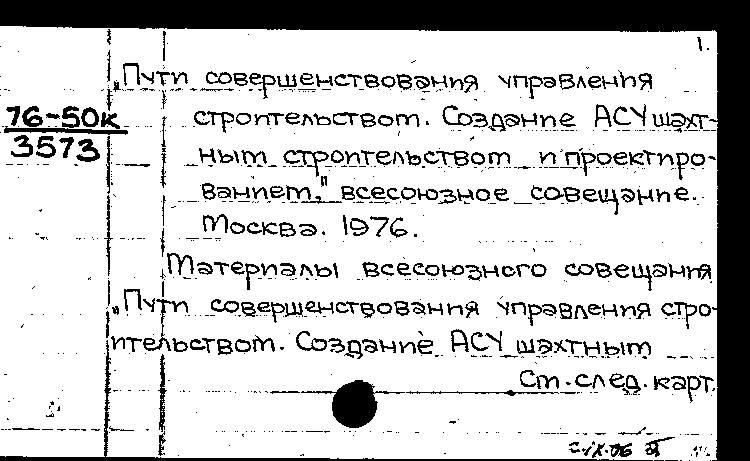 1.
„Пути совершенствования управления
76-50к
3573
строительством. Создание АСУ шахт-
ным строительством и проектиро-
ванием," всесоюзное совещание.
Москва. 1976.
Материалы всесоюзного совещания
„Пути совершенствования управления стро-
ительством. Создание АСУ шахтным
См. след. карт.